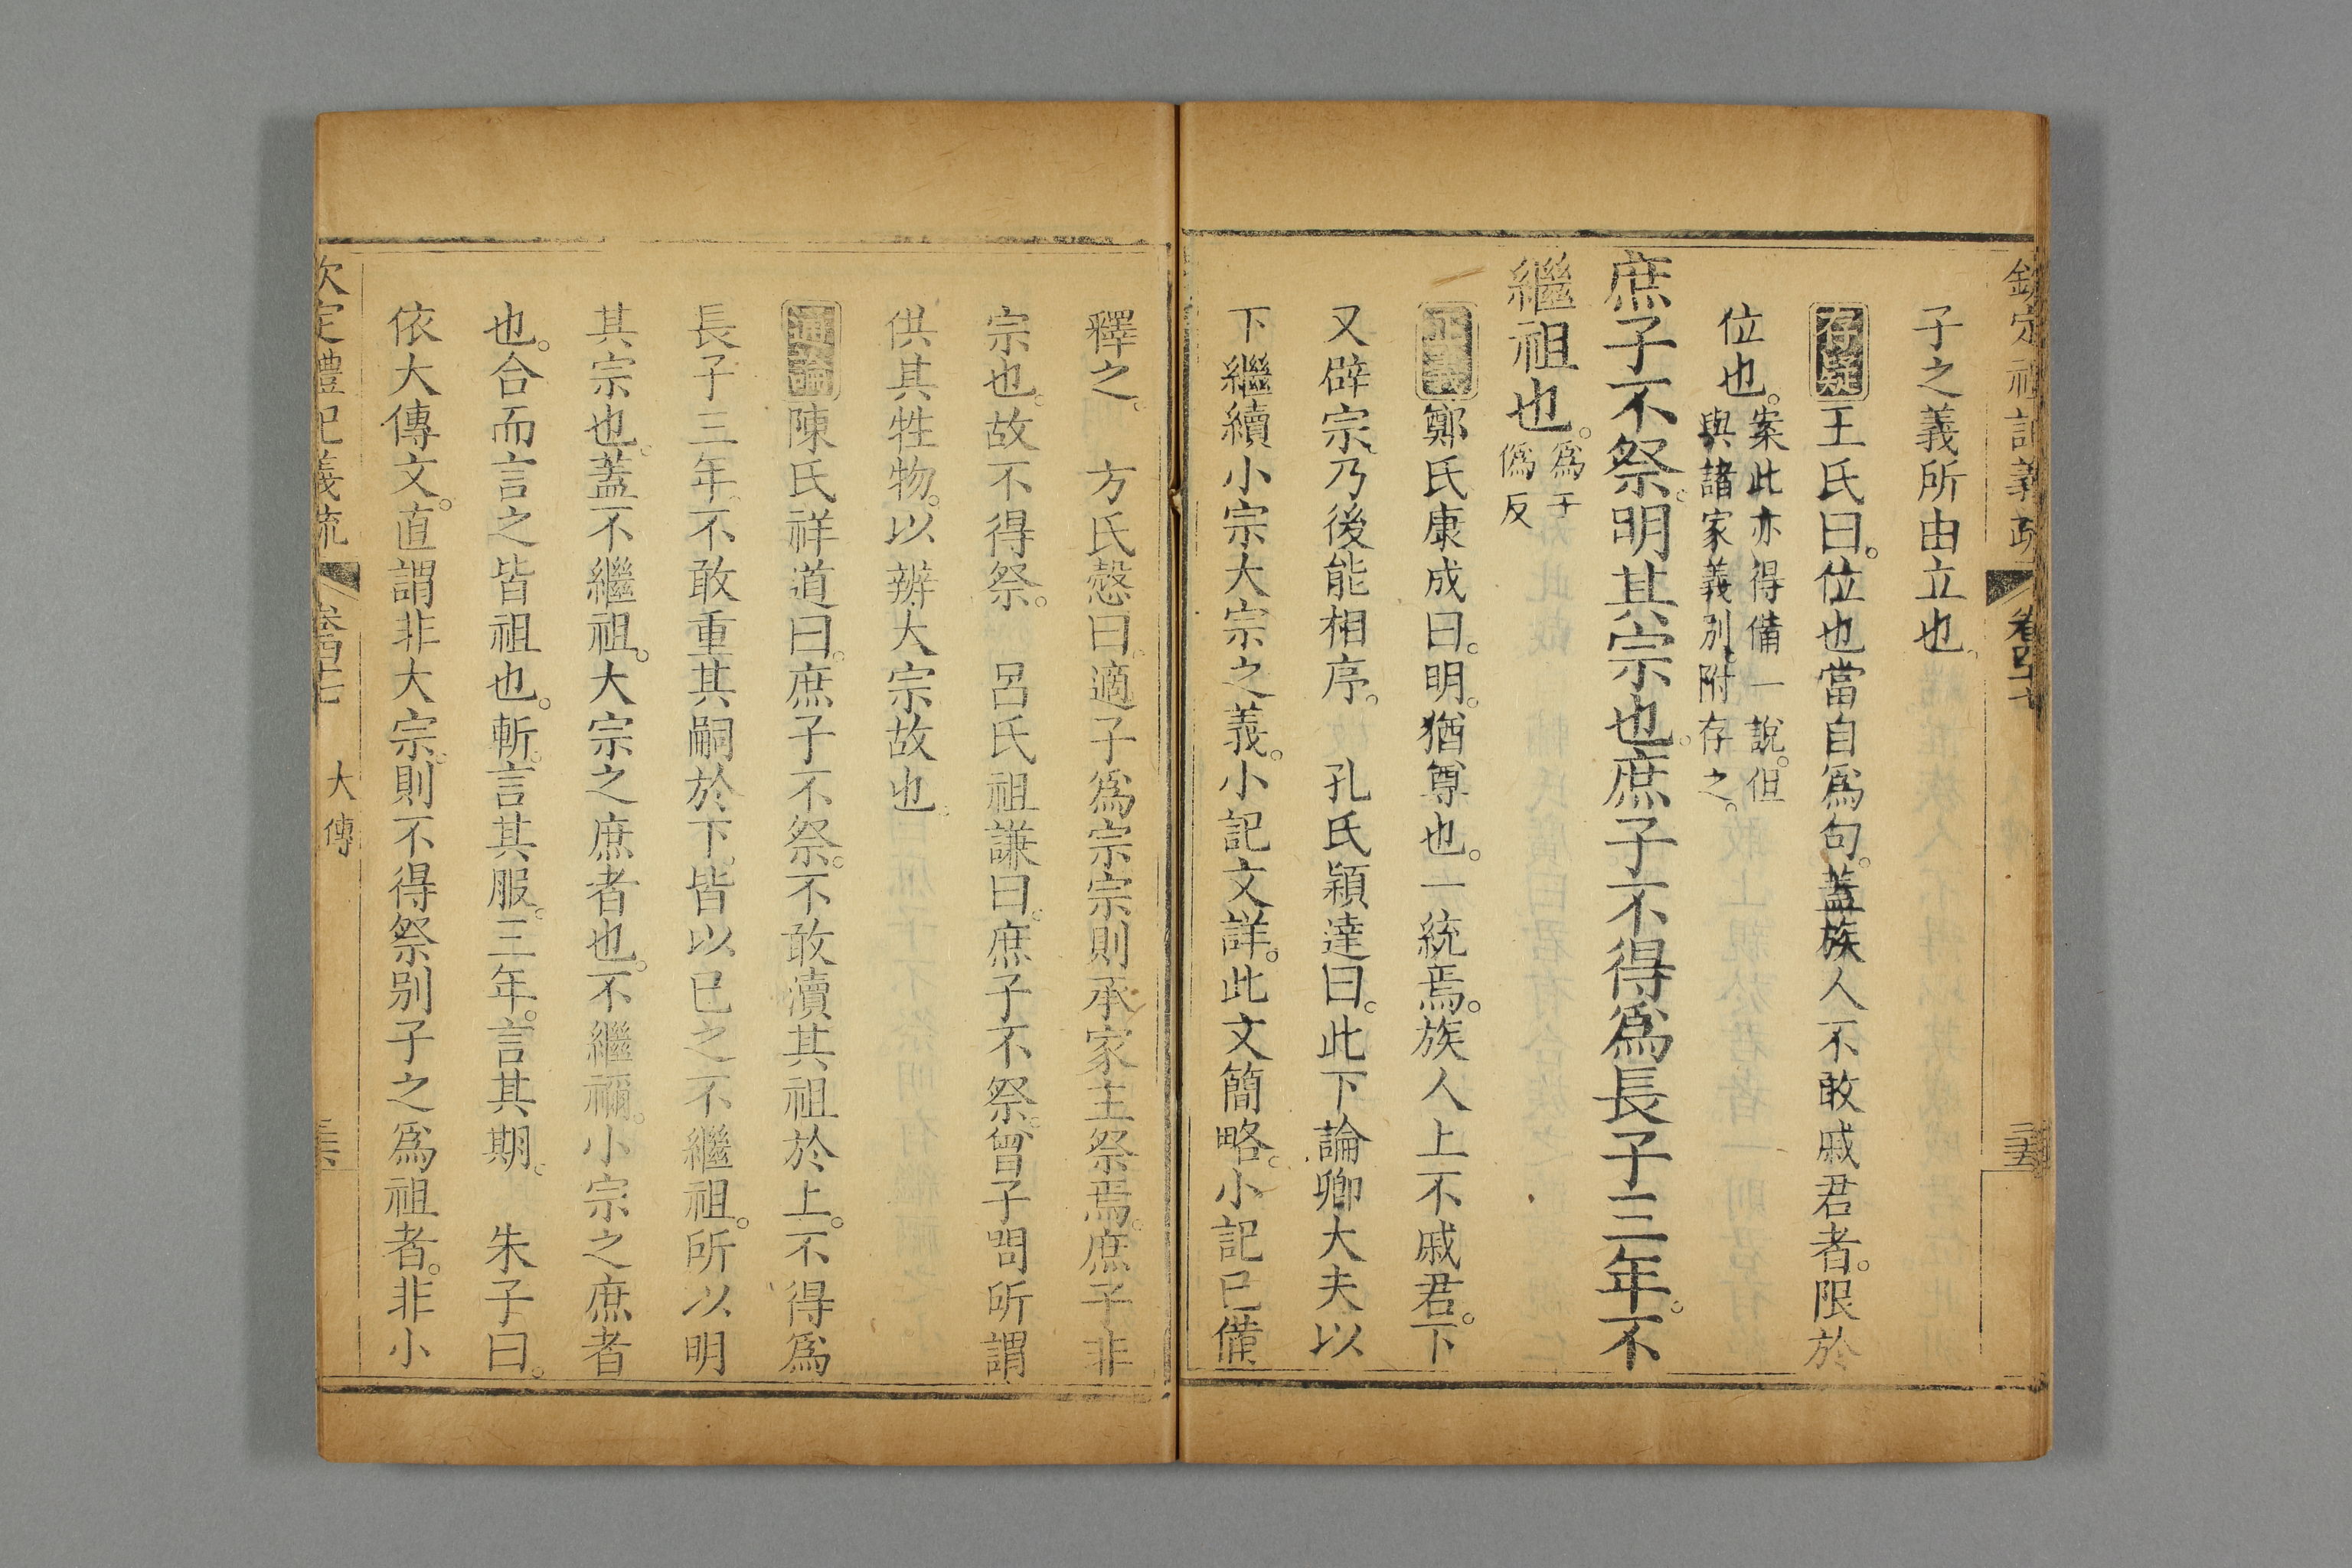 欽定禮記義疏 卷四十七
子之義所由立也
存疑王氏曰。位也當自爲句。蓋族人不敢戚君者。限於
位也。案此亦得備一說。但
與諸家義別。附存之。
庶子不祭。明其宗也。庶子不得爲長子三年。不
繼祖也。爲于
僞反
正義鄭氏康成曰。明。猶尊也。一統焉。族人上不戚君。下
又辟宗。乃後能相序。 孔氏穎達曰。此下論卿大夫以
下繼續小宗大宗之義。小記文詳。此文簡略。小記已備
釋之。 方氏慤曰。適子爲宗宗則承家主祭焉。庶子非
宗也。故不得祭。 呂氏祖謙曰。庶子不祭。曾子問所謂
供其牲物。以辨大宗故也。
通論陳氏祥道曰。庶子不祭。不敢瀆其祖於上。不得爲
長子三年。不敢重其嗣於下。皆以已之不繼祖。所以明
其宗也。蓋不繼祖。大宗之庶者也。不繼禰。小宗之庶者
也。合而言之皆祖也。斬。言其服。三年。言其期。 朱子曰。
依大傳文。直謂非大宗。則不得祭別子之爲祖者。非小
欽定禮記義疏 卷四十七 大傳